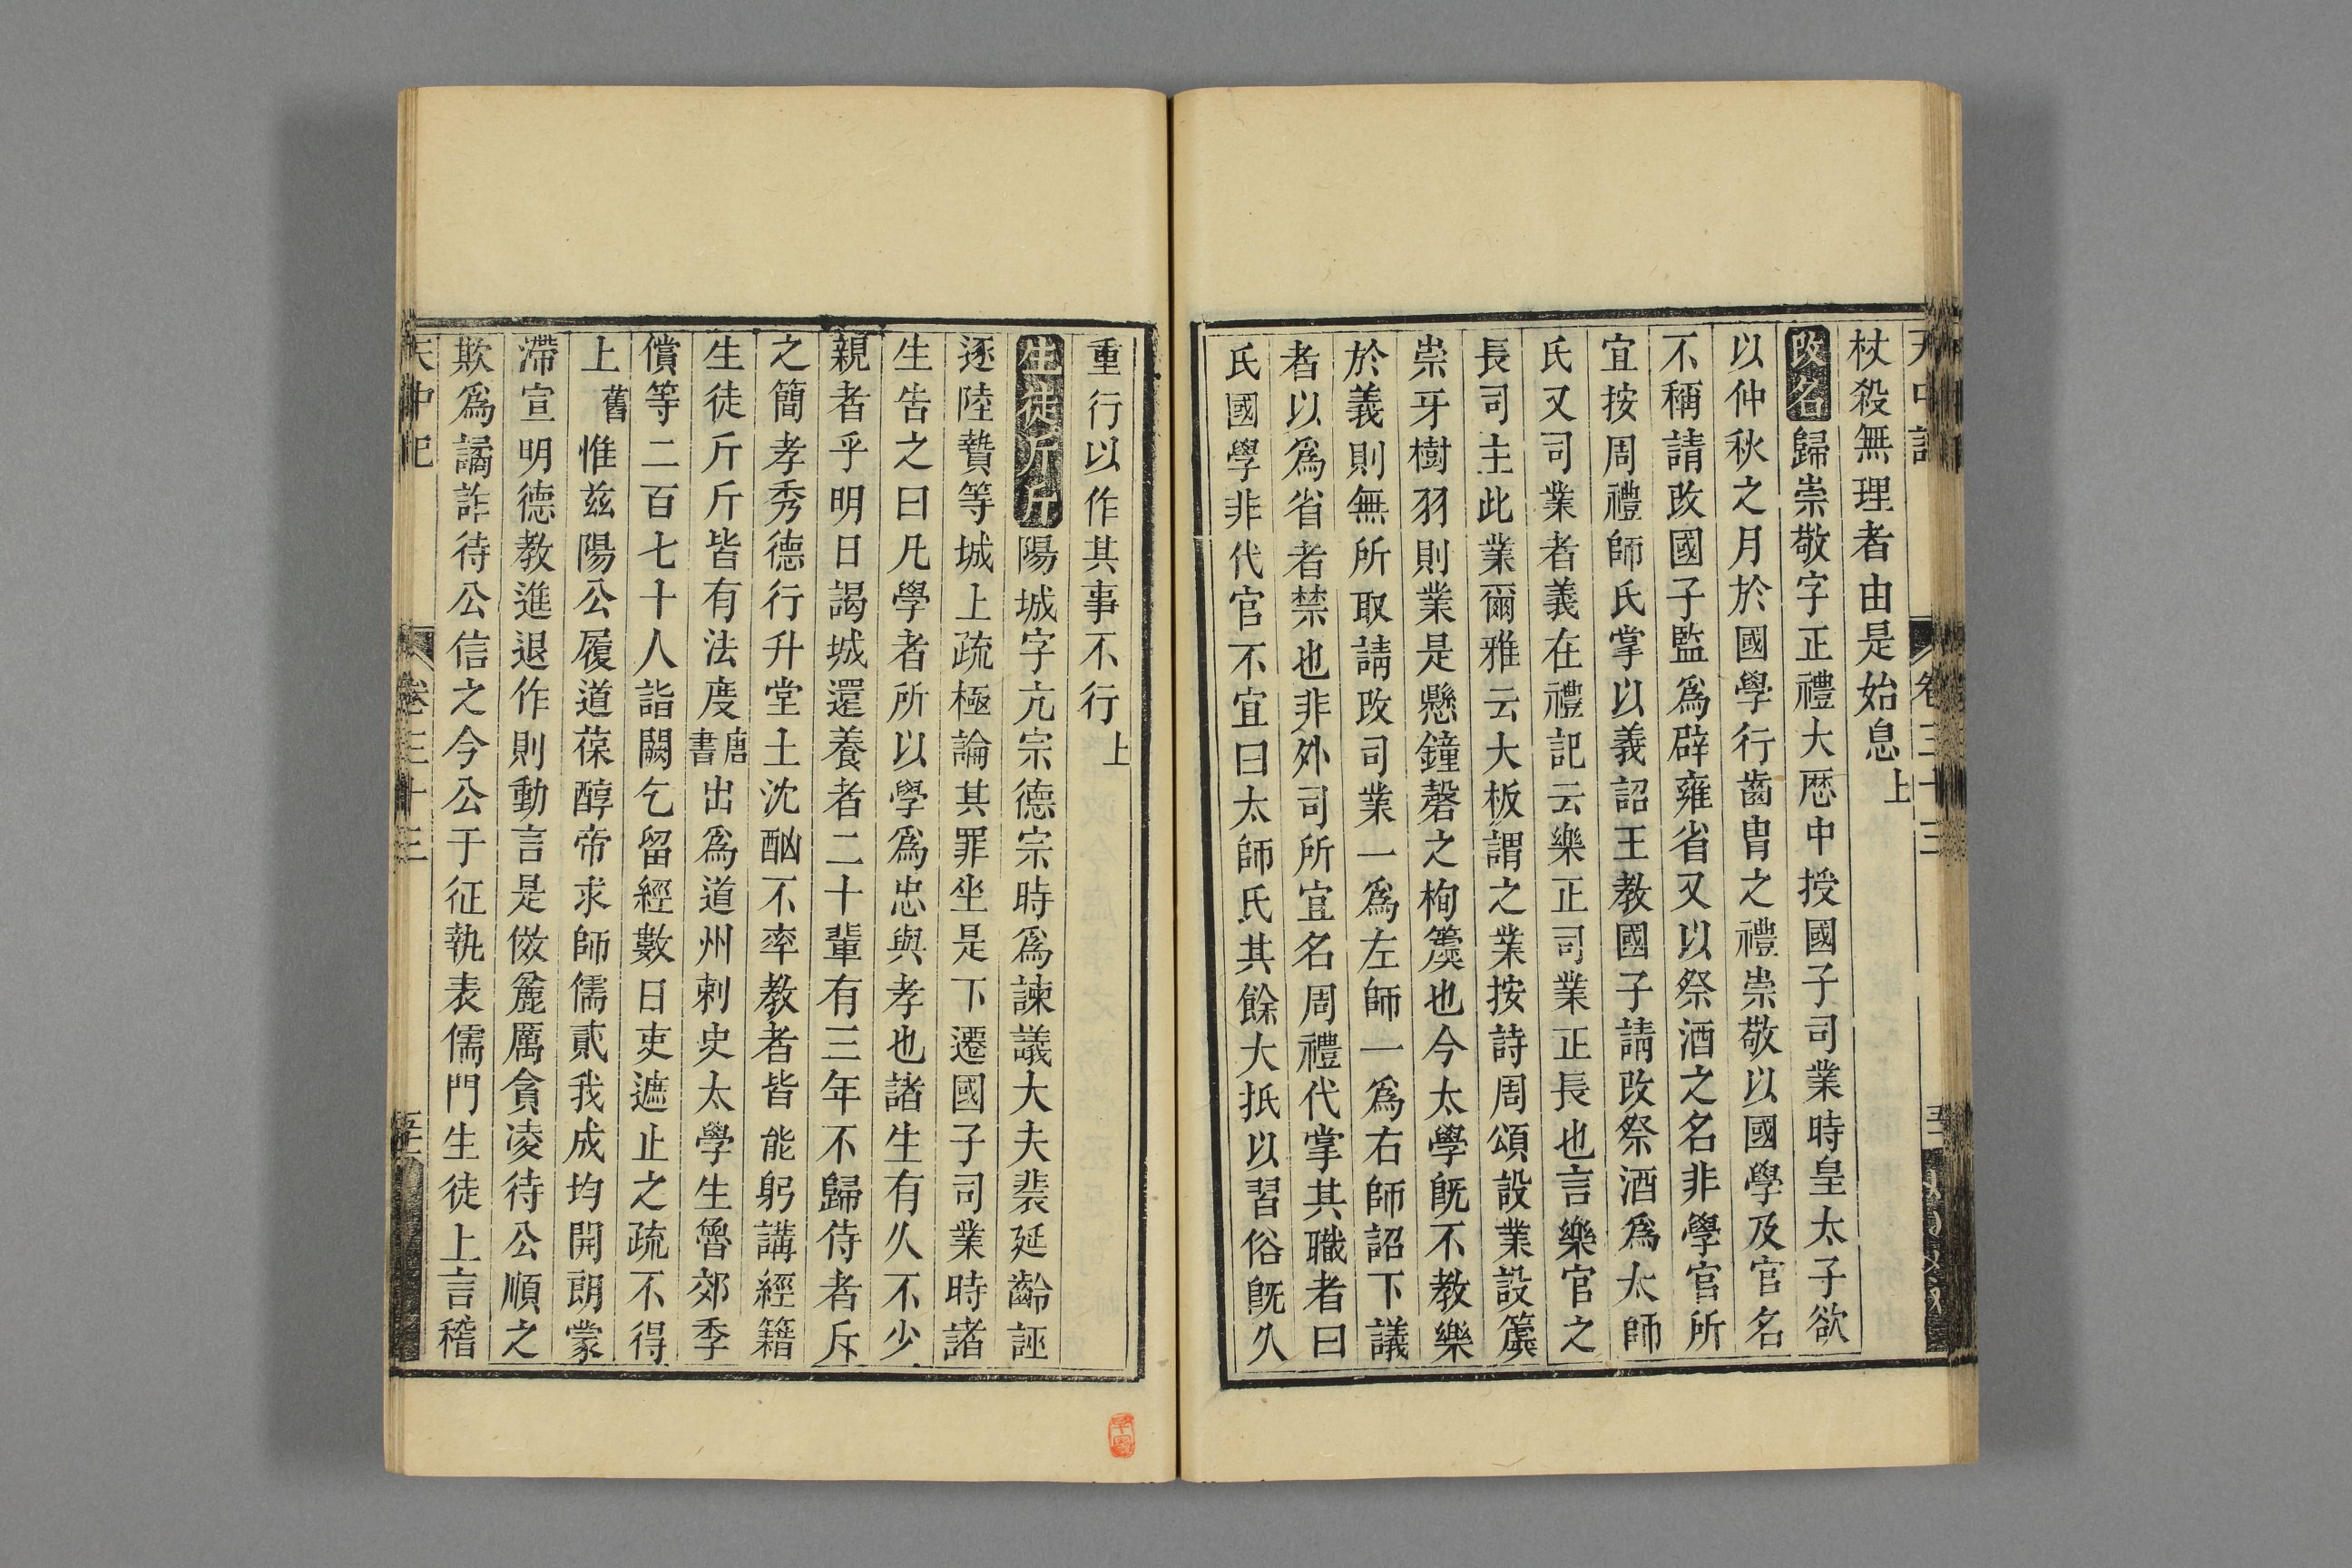 天中記 卷三十三
杖殺無理者由是始息上
改名歸崇敬字正禮大厯中授國子司業時皇太子欲
以仲秋之月於國學行齒胄之禮崇敬以國學及官名
不稱請改國子監爲辟雍省又以祭酒之名非學官所
宜按周禮師氏掌以義詔王教國子請改祭酒爲太師
氏又司業者義在禮記云樂正司業正長也言樂官之
長司主此業爾雅云大板謂之業按詩周頌設業設簴
崇牙樹羽則業是懸鐘磬之栒簴也今太學旣不教樂
於義則無所取請改司業一爲左師一爲右師詔下議
者以爲省者禁也非外司所宜名周禮代掌其職者曰
氏國學非代官不宜曰太師氏其餘大抵以習俗旣久
重行以作其事不行上
生徒斤斤陽城字亢宗德宗時爲諫議大夫裴延齡誣
逐陸贄等城上疏極論其罪坐是下遷國子司業時諸
生告之曰凡學者所以學爲忠與孝也諸生有久不少
親者乎明日謁城還養者二十輩有三年不歸侍者斥
之簡孝秀德行升堂上沈酗不率教者皆能躬講經籍
生徒斤斤皆有法度唐書出爲道州刺史太學生魯郊季
償等二百七十人詣闕乞留經數日吏遮止之疏不得
上舊惟茲陽公履道葆醇帝求師儒貳我成均開朗蒙
滯宣明德教進退作則動言是倣麄厲貪凌待公順之
欺爲譎詐待公信之今公于征執表儒門生徒上言稽
天中記 卷三十三